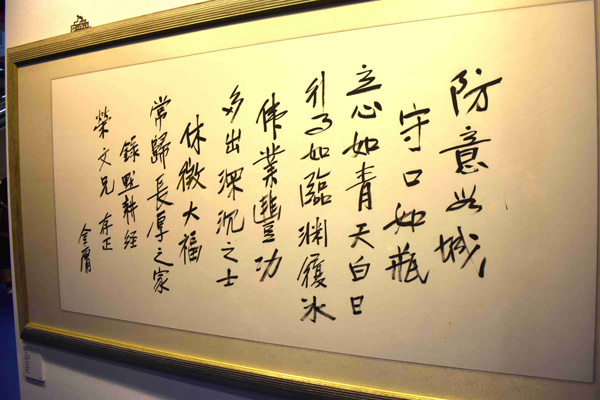 防意如城
守口如瓶
立心如青天白日
行事如臨渊履冰
偉業豐功
多出深沉之士
休徵大福
常歸長厚之家
錄默耕經
榮文兄 存正
金庸